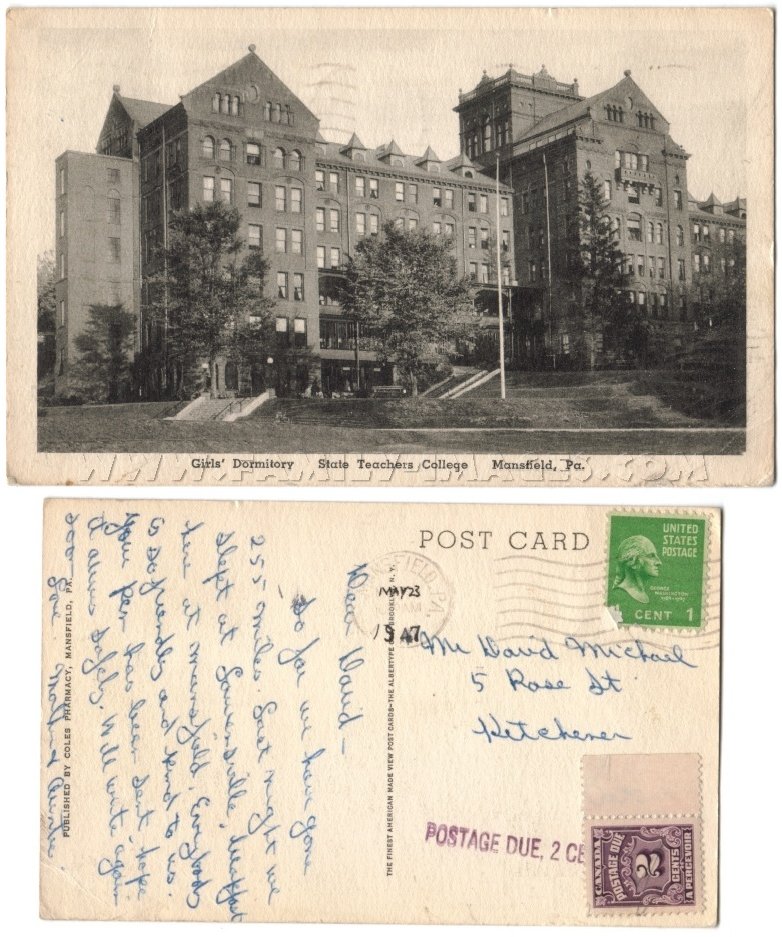 Girls' Dormitory State Teachers College Mansfield, Pa.
WWW.FAMILY-IMAGES.COM
POST CARD
UNITED
STATES
POSTAGE
GEORGE
WASHINGTON
CENT 1
FIELD, PA.
MAY 23
AM
1947
Mr David Michael
5 Rose St
Kitchener
POSTAGE DUE, 2 CE
CANADA
POSTAGE DUE
2
CENTS
A PERCEVOIR
THE FINEST AMERICAN MADE VIEW POST CARDS—THE ALBERTYPE BROOKLYN, N. Y.
PUBLISHED BY COLES PHARMACY, MANSFIELD, PA.
Dear David—
So far we have gone
255 miles. Last night we
slept at Lawrenceville, breakfast
here at Mansfield. Everybody
is so friendly and kind to us.
Your pen has been sent hope
it arrives safely. Will write again
soon Love